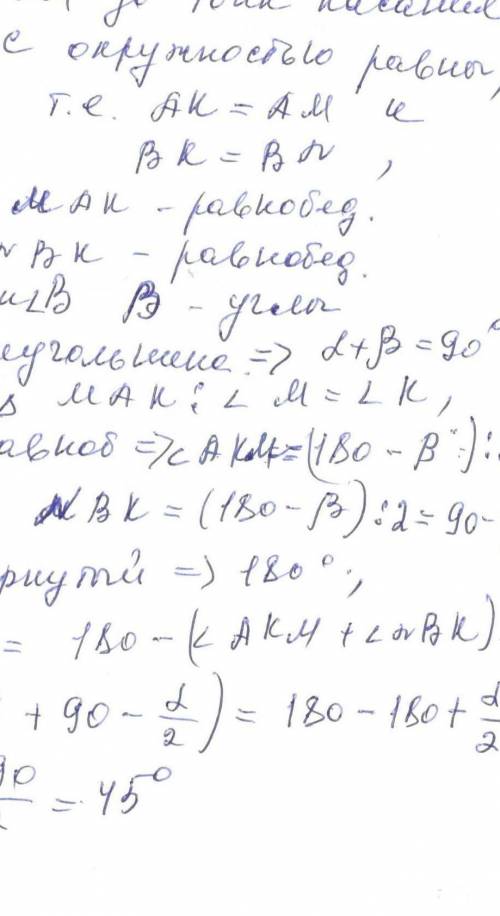 до точек касания
с окружностью равны,
т.е. AK = AM и
BK = BN ,
MAK - равнобед.
NBK - равнобед.
и ∠B β - углы
еугольника => α+β = 90°
Δ MAK : ∠ M = ∠ K,
авноб => ∠ AKM = (180 - β°) :
NBK = (180 - β) : 2 = 90 -
рнутый => 180° ;
= 180 - (∠ AKM + ∠ NBK)
+ 90 - α/2 ) = 180 - 180 + α/2
= 45°